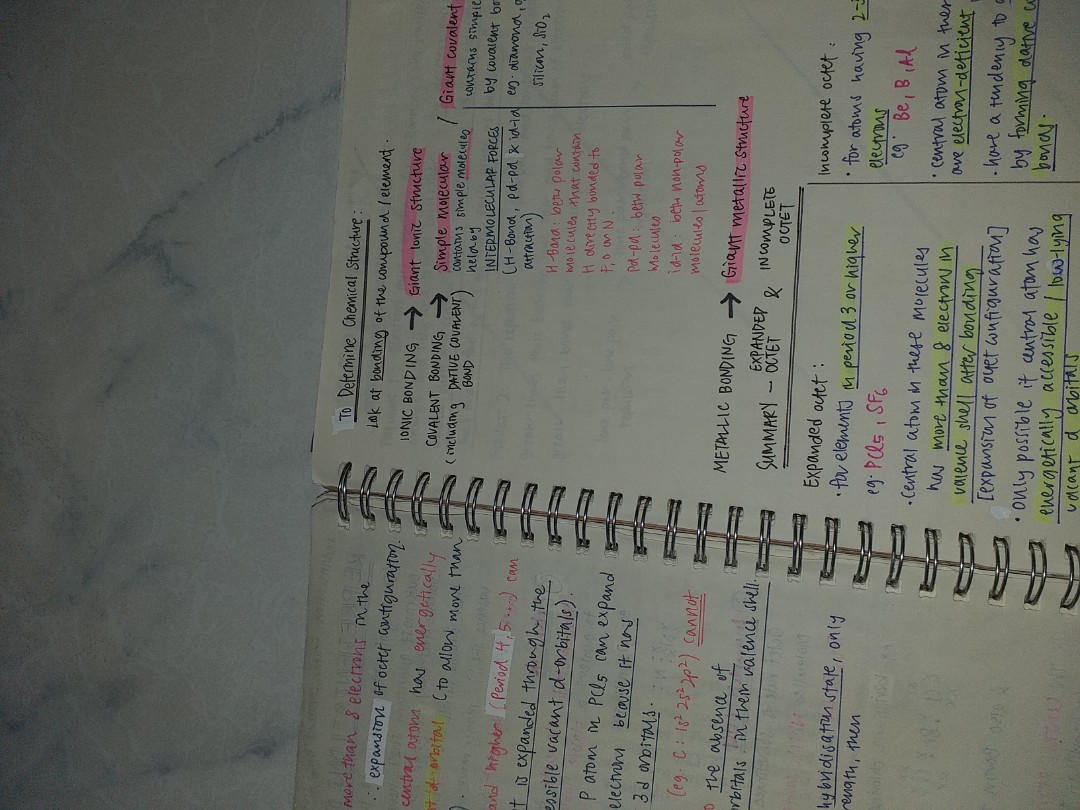 more than 8 electrons in the
expansion of octet configuration.
central atom has energetically
d-orbital (to allow more than
and higher (Period 4,5...) can
t is expanded through the
essible vacant d-orbitals).
P atom in PCl5 can expand
electron because it has
3d orbitals.
(eg. C: 1s² 2s² 2p²) cannot
the absence of
orbitals in their valence shell.
hybridisation state, only
rength, then
To Determine Chemical Structure:
look at bonding of the compound / element.
IONIC BONDING → Giant Ionic Structure
COVALENT BONDING → Simple Molecular / Giant covalent
(including DATIVE COVALENT BOND)
contains simple molecules
held by
INTERMOLECULAR FORCES
(H-Bond, pd-pd & id-id
attraction)
H-Bond: betw polar
molecules that contain
H directly bonded to
F, O or N.
pd-pd: betw polar
Molecules
id-id: betw non-polar
molecules / atoms
contains simple
by covalent bo
eg. diamond,
silicon, SiO2
METALLIC BONDING → Giant metallic structure
SUMMARY - EXPANDED OCTET & INCOMPLETE OCTET
Expanded octet:
• for elements in period 3 or higher
eg. PCl5, SF6
• Central atom in these molecules
has more than 8 electron in
valence shell after bonding
[expansion of octet configuration]
• only possible if central atom has
energetically accessible / low-lying
vacant d orbitals
Incomplete octet:
• for atoms having 2-
electrons
eg. Be, B, Al
• central atom in the
are electron-deficient
• have a tendency to
by forming dative
bonds.